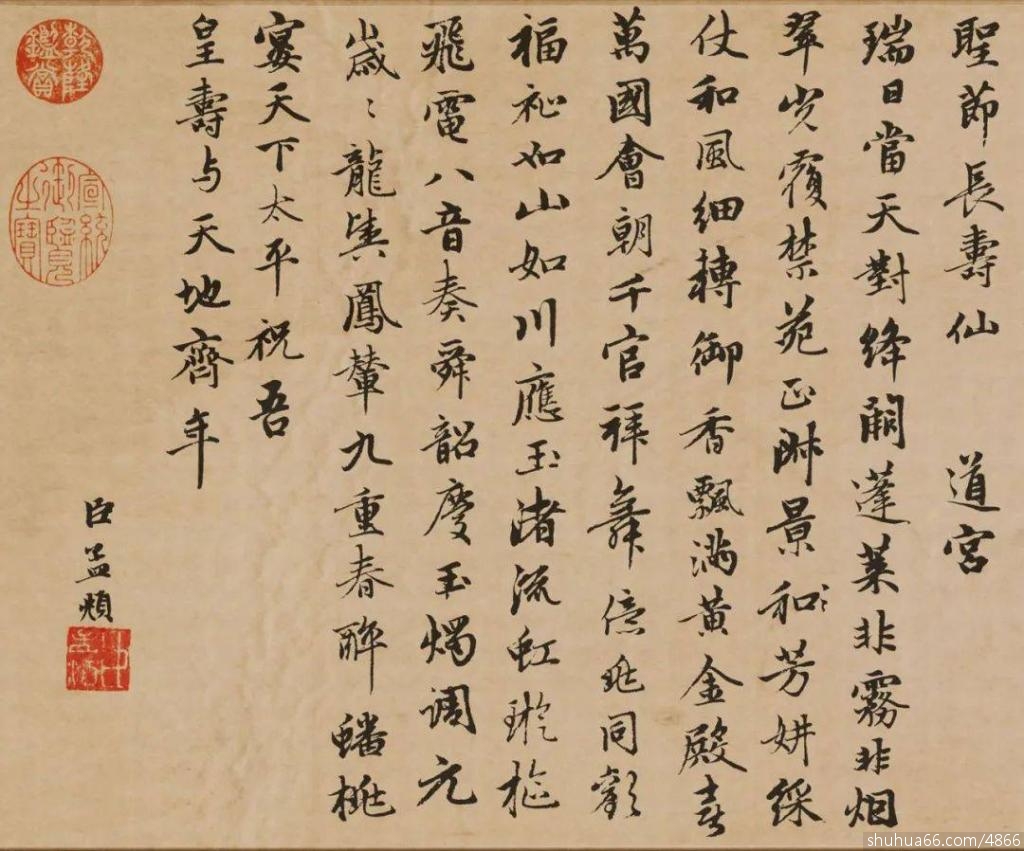 聖節長壽仙 道宮
瑞日當天對絳闕蓬萊非霧非烟
翠光覆禁苑正淑景和芳妍綵
仗和風細轉御香飄滿黃金殿喜
萬國會朝千官拜舞億兆同歡
福祉如山如川應玉渚流虹璇樞
飛電八音奏舜韶慶玉燭調元
歲〻龍輿鳳輦九重春醉蟠桃
宴天下太平祝吾
皇壽与天地齊年
臣孟頫
乾隆鑑賞
宣統御覽之寶
shuhua66.com/4866